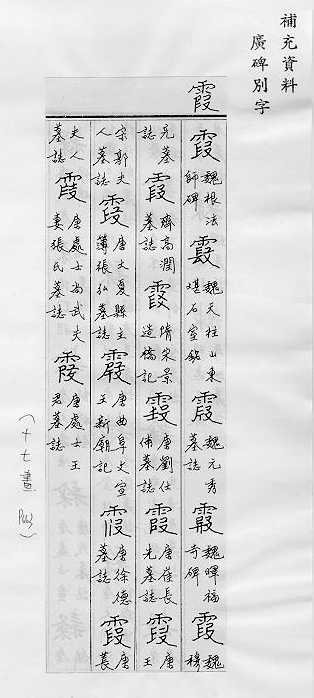 補充資料
廣碑別字
霞
霞 魏根法師碑 霞 魏天柱山東堪石室銘 霞 魏元秀墓誌 霞 魏暉福寺碑 霞 魏穆
亮墓誌 霞 齊高潤墓誌 霞 隋宋景造橋記 霞 唐劉仕俌墓誌 霞 唐崔長先墓誌 霞 唐王
宋郭夫人墓誌 霞 唐大夏縣主簿張弘墓誌 霞 唐曲阜文宣王新廟記 霞 唐徐德墓誌 霞 唐萇
夫人墓誌 霞 唐處士尚武夫妻張氏墓誌 霞 唐處士王君墓誌
(十七畫)